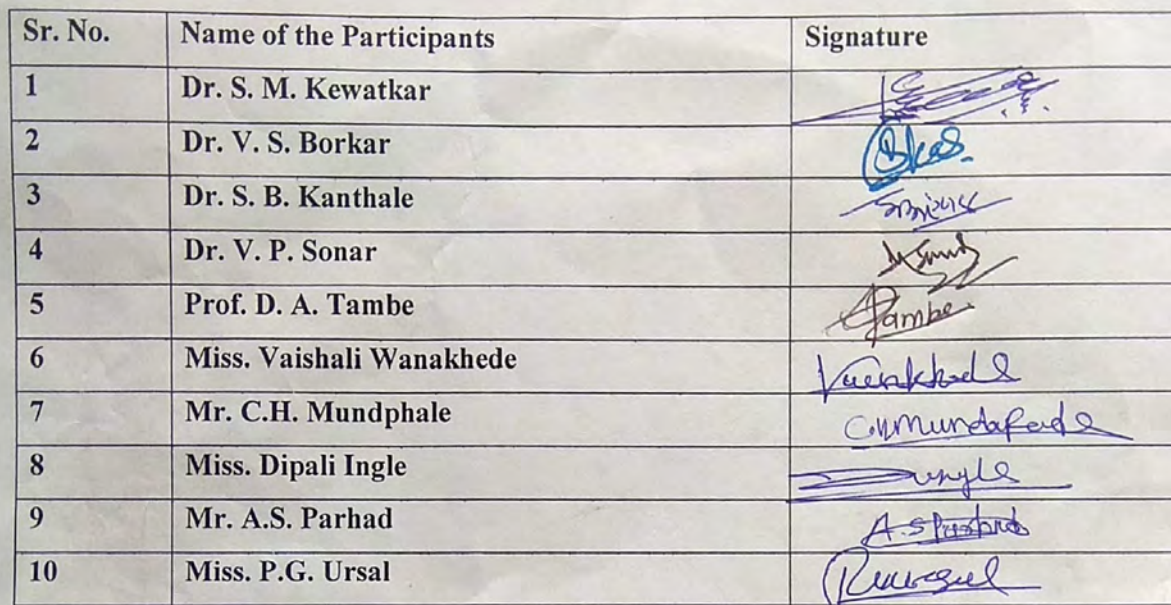 Sr. No. Name of the Participants Signature
1 Dr. S. M. Kewatkar
2 Dr. V. S. Borkar
3 Dr. S. B. Kanthale
4 Dr. V. P. Sonar
5 Prof. D. A. Tambe Tambe
6 Miss. Vaishali Wanakhede
7 Mr. C.H. Mundphale
8 Miss. Dipali Ingle
9 Mr. A.S. Parhad
10 Miss. P.G. Ursal